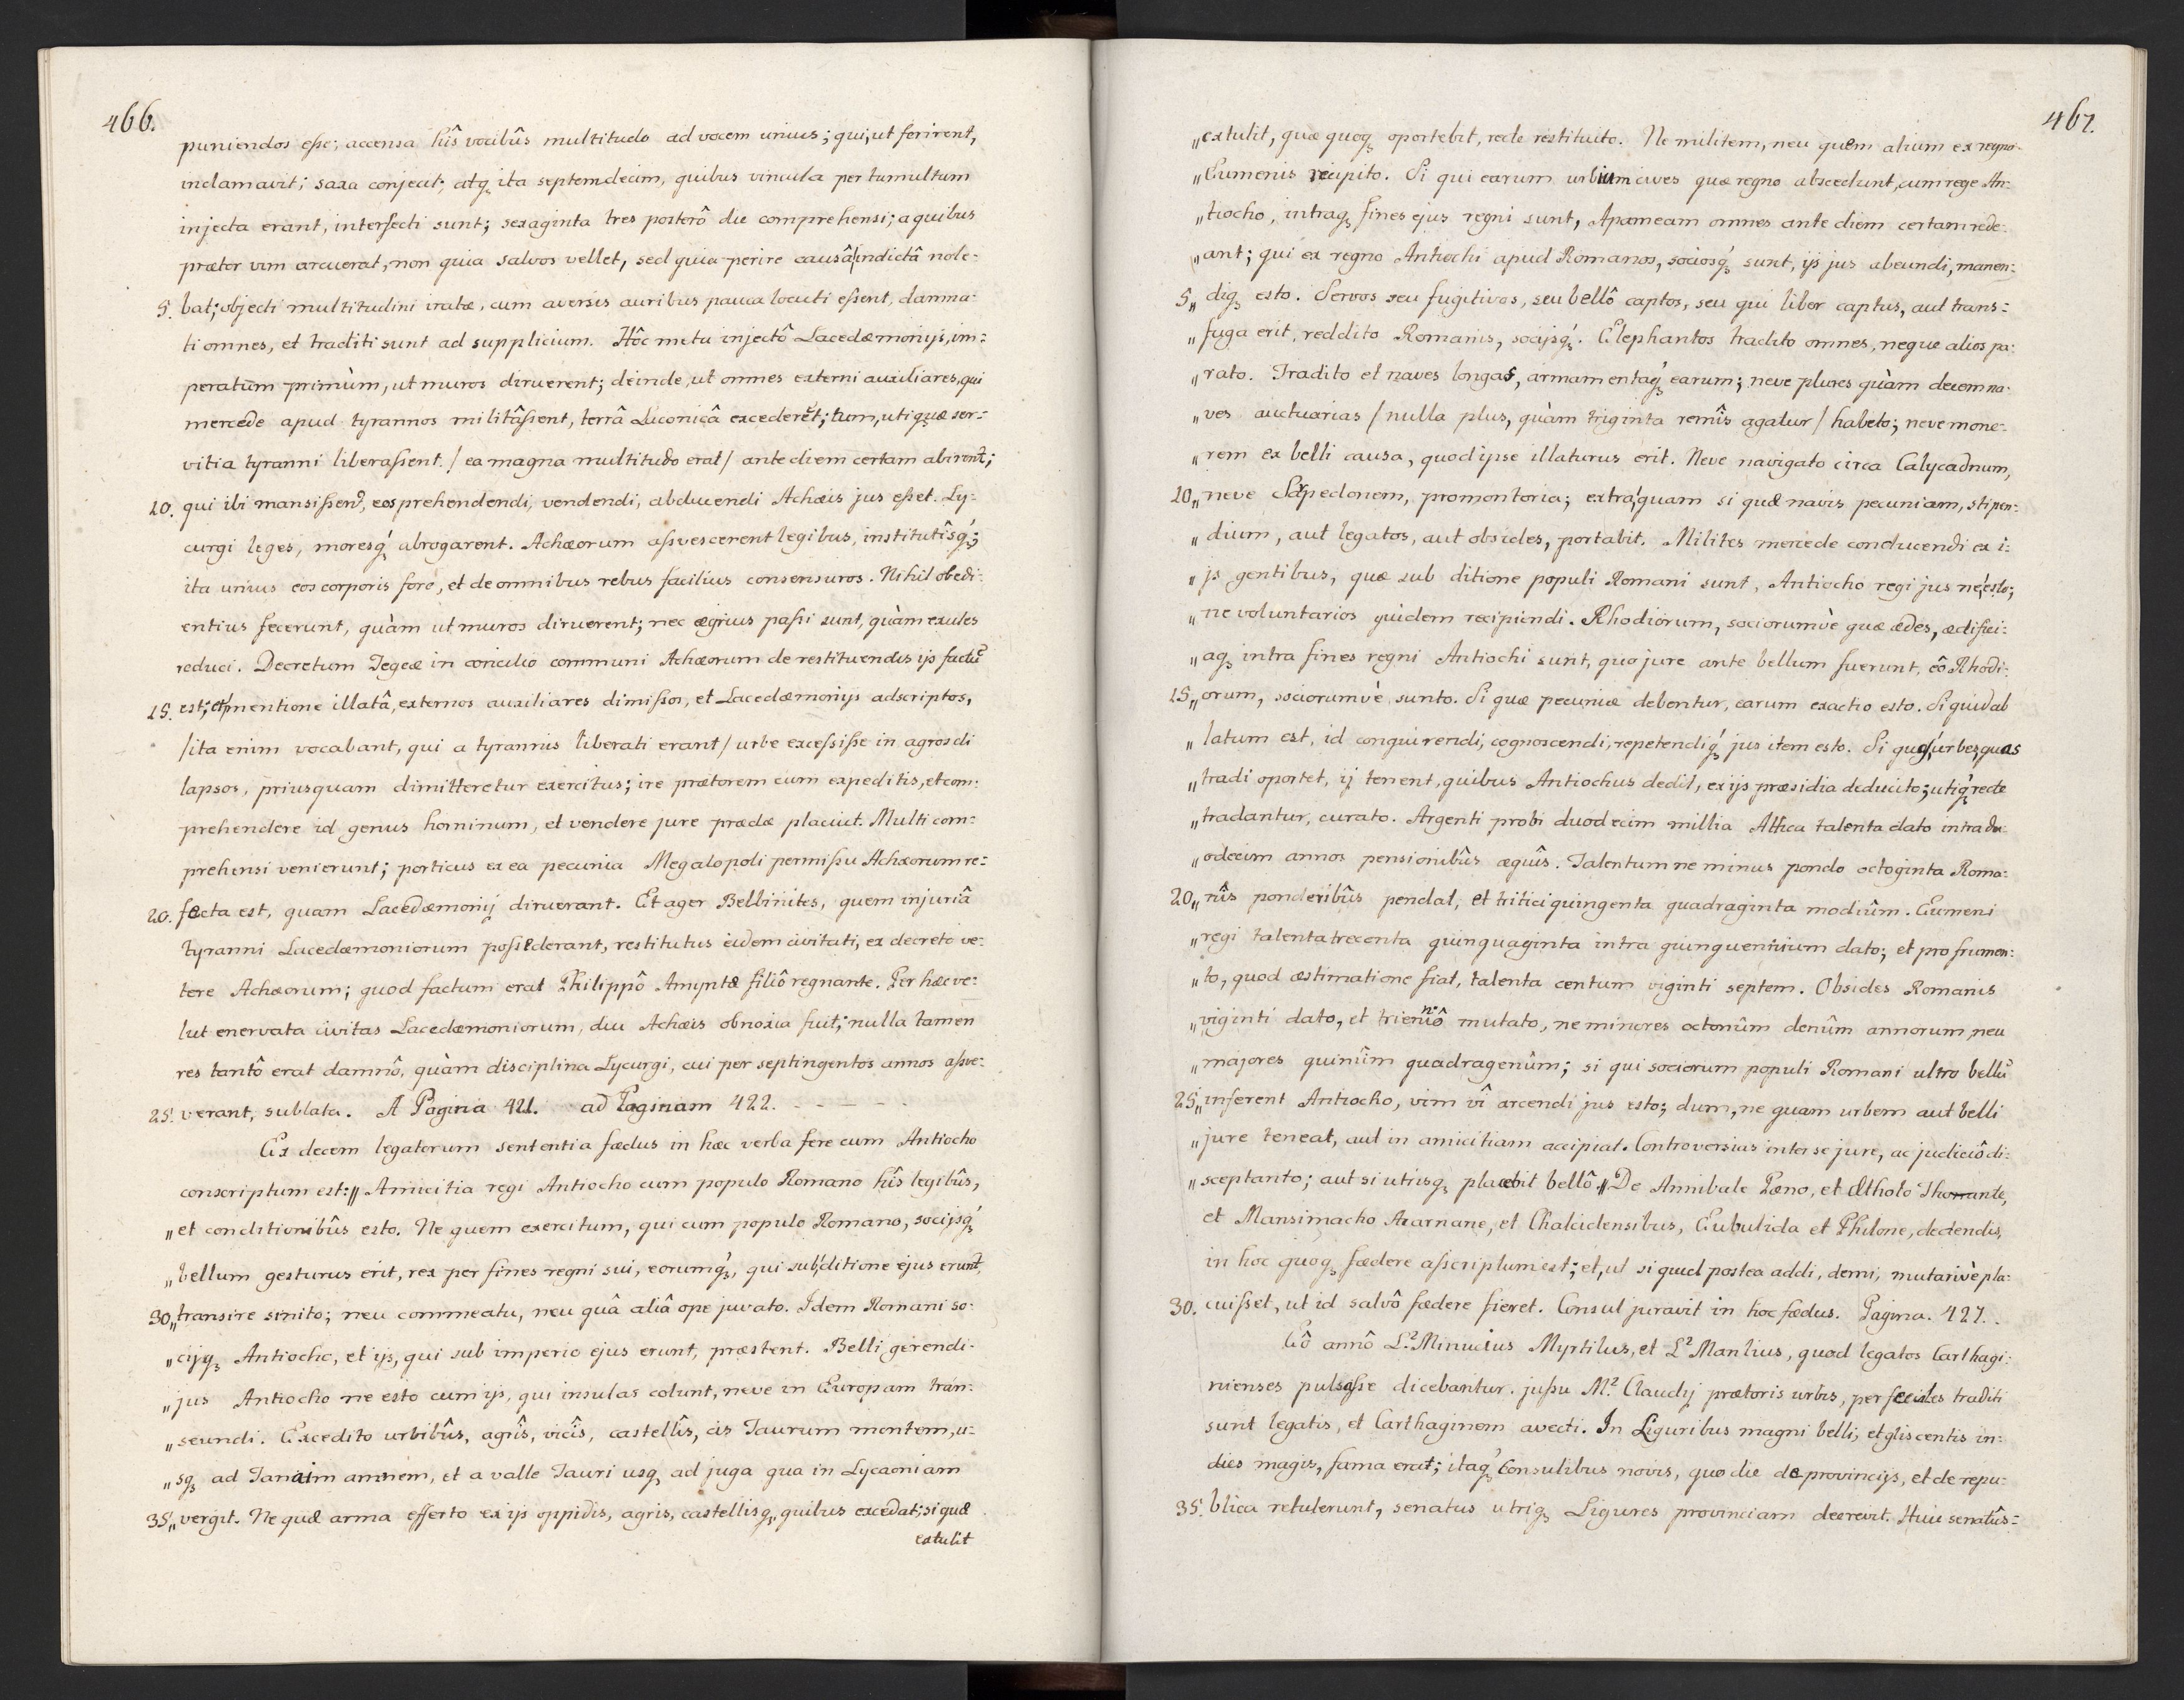 466.
puniendos esse; accensa hîs vocibûs multitudo ad vocem unius; qui, ut ferirent,
inclamavit; saxa conjecit; atq ita septemdecim, quibus vincula per tumultum
injecta erant, interfecti sunt; sexaginta tres posterô die comprehensi; a quibus
prætor vim arcuerat, non quia salvos vellet, sed quia perire causâ indictâ nole:
5. bat; objecti multitudini iratæ, cum aversis auribus pauca locuti essent, damna:
ti omnes, et traditi sunt ad supplicium. Hôc metu injectô Lacedæmonijs, im:
peratum primùm, ut muros diruerent; deinde, ut omnes externi auxiliares, qui
mercede apud tyrannos militâssent, terrâ Liconicâ excederẽt; tum, uti quæ ser:
vitia tyranni liberassent / ea magna multitudo erat / ante diem certam abirent;
10. qui ibi mansissent, eos prehendendi, vendendi, abducendi Achæis jus esset. Ly:
curgi leges, moresq́ abrogarent. Achæorum assvescerent legibus, institutîsq́;
ita unius eos corporis fore, et de omnibus rebus facilius consensuros. Nihil obedi:
entius fecerunt, quàm ut muros diruerent; nec ægrius passi sunt, quàm exules
reduci. Decretum Tegeæ in concilio communi Achæorum de restituendis ijs factũ
15. est; et mentione illatâ, externos auxiliares dimissos, et Lacedæmonijs adscriptos,
/ita enim vocabant, qui a tyrannis liberati erant/ urbe excessisse in agros di
lapsos, priusquam dimitteretur exercitus; ire prætorem cum expeditis, et com:
prehendere id genus hominum, et vendere jure prædæ placuit. Multi com:
prehensi venierunt; porticus ex ea pecunia Megalopoli permissu Achæorum re:
20. fecta est, quam Lacedæmonij diruerant. Et ager Belbinites, quem injuriâ
tyranni Lacedæmoniorum possederant, restitutus eidem civitati, ex decreto ve:
tere Achæorum; quod factum erat Philippô Amyntæ filiô regnante. Per hæc ve:
lut enervata civitas Lacedæmoniorum, diu Achæis obnoxia fuit; nulla tamen
res tantô erat damnô, quàm disciplina Lycurgi, cui per septingentos annos assve:
25. verant, sublata. A Pagina 421. ad Paginam 422. - - - - -
Ex decem legatorum sententia fædus in hæc verba fere cum Antiocho
conscriptum est: „ Amicitia regi Antiocho cum populo Romano hîs legibûs,
„ et conditionibûs esto. Ne quem exercitum, qui cum populo Romano, socijsq́
„ bellum gesturus erit, rex per fines regni sui, eorumq́, qui sub ditione ejus erunt,
30„ transire sinito; neu commeatu, neu quâ aliâ ope juvato. Idem Romani so:
„ cijq Antiocho, et ijs, qui sub imperio ejus erunt, præstent. Belli gerendi
„ jus Antiocho ne esto cum ijs, qui insulas colunt, neve in Europam tran:
„ seundi. Excedito urbibûs, agrîs, vicîs, castellîs, cis Taurum montem, u:
„ sq ad Tanaim amnem, et a valle Tauri usq ad juga qua in Lycaoniam
35„ vergit. Ne quæ arma efferto ex ijs oppidis, agris, castellisq, quibus excedat; si quæ
extulit
467.
„ extulit, quæ quoq oportebit, recte restituito. Ne militem, neu quem alium ex regno
„ Eumenis recipito. Si qui earum urbium cives quæ regno abscedunt, cum rege An:
„ tiocho, intraq fines ejus regni sunt, Apameam omnes ante diem certam rede:
„ ant; qui ex regno Antiochi apud Romanos, sociosq́ sunt, ijs jus abeundi, manen:
5„ diq esto. Servos seu fugitivos, seu bellô captos, seu qui liber captus, aut trans:
„ fuga erit, reddito Romanis, socijsq́. Elephantos tradito omnes, neque alios pa:
„ rato. Tradito et naves longas, armamentaq́ earum; neve plures quàm decem na:
„ ves auctuarias / nulla plus, quàm triginta remîs agatur / habeto; neve mone:
„ rem ex belli causa, quod ipse illaturus erit. Neve navigato circa Calycadnum,
10„ neve Sarpedonem, promontoria; extra, quam si quæ navis pecuniam, stipen:
„ dium, aut legatos, aut obsides, portabit. Milites mercede conducendi ex i:
„ js gentibus, quæ sub ditione populi Romani sunt, Antiocho regi jus ne esto;
„ ne voluntarios quidem recipiendi. Rhodiorum, sociorumvè quæ ædes, ædifici:
„ aq intra fines regni Antiochi sunt, quo jure ante bellum fuerunt, eô Rhodi:
15„ orum, sociorumvè sunto. Si quæ pecuniæ debentur, earum exactio esto. Si quid ab
„ latum est, id conquirendi, cognoscendi, repetendiq́ jus item esto. Si quas urbes, quas
„ tradi oportet, ij tenent, quibus Antiochus dedit, ex ijs præsidia deducito; utiq́ recte
„ tradantur, curato. Argenti probi duodecim millia Attica talenta dato intra du:
„ odecim annos pensionibûs æquîs. Talentum ne minus pondo octoginta Roma:
20„ nîs ponderibûs pendat, et tritici quingenta quadraginta modiûm. Eumeni
„ regi talenta trecenta quinquaginta intra quinquennium dato; et pro frumen:
„ to, quod æstimatione fiat, talenta centum viginti septem. Obsides Romanis
„ viginti dato, et trienniô mutato, ne minores octonûm denûm annorum, neu
„ majores quinûm quadragenûm; si qui sociorum populi Romani ultro bellũ
25„ inferent Antiocho, vim vî arcendi jus esto; dum, ne quam urbem aut belli
„ jure teneat, aut in amicitiam accipiat. Controversias inter se jure, ac judiciô di:
„ sceptanto; aut si utrisq placebit bellô.„ De Annibale Pæno, et Æthoto Thomante,
et Mansimacho Acarnane, et Chalcidensibus, Eubulida et Philone, dedendis,
in hoc quoq fædere asscriptum est; et, ut si quid postea addi, demi, mutarivè pla:
30. cuisset, ut id salvô fædere fieret. Consul juravit in hoc fædus. Pagina. 427. .
Eô annô L.² Minucius Myrtilus, et L.² Manlius, quod legatos Carthagi:
nienses pulsasse dicebantur, jussu M.² Claudij prætoris urbis, per feciales traditi
sunt legatis, et Carthaginem avecti. In Liguribus magni belli, et gliscentis in:
dies magis, fama erat; itaq́ Consulibus novis, quo die de provincijs, et de repu:
35. blica retulerunt, senatus utriq Ligures provinciam decrevit. Huic senatûs: